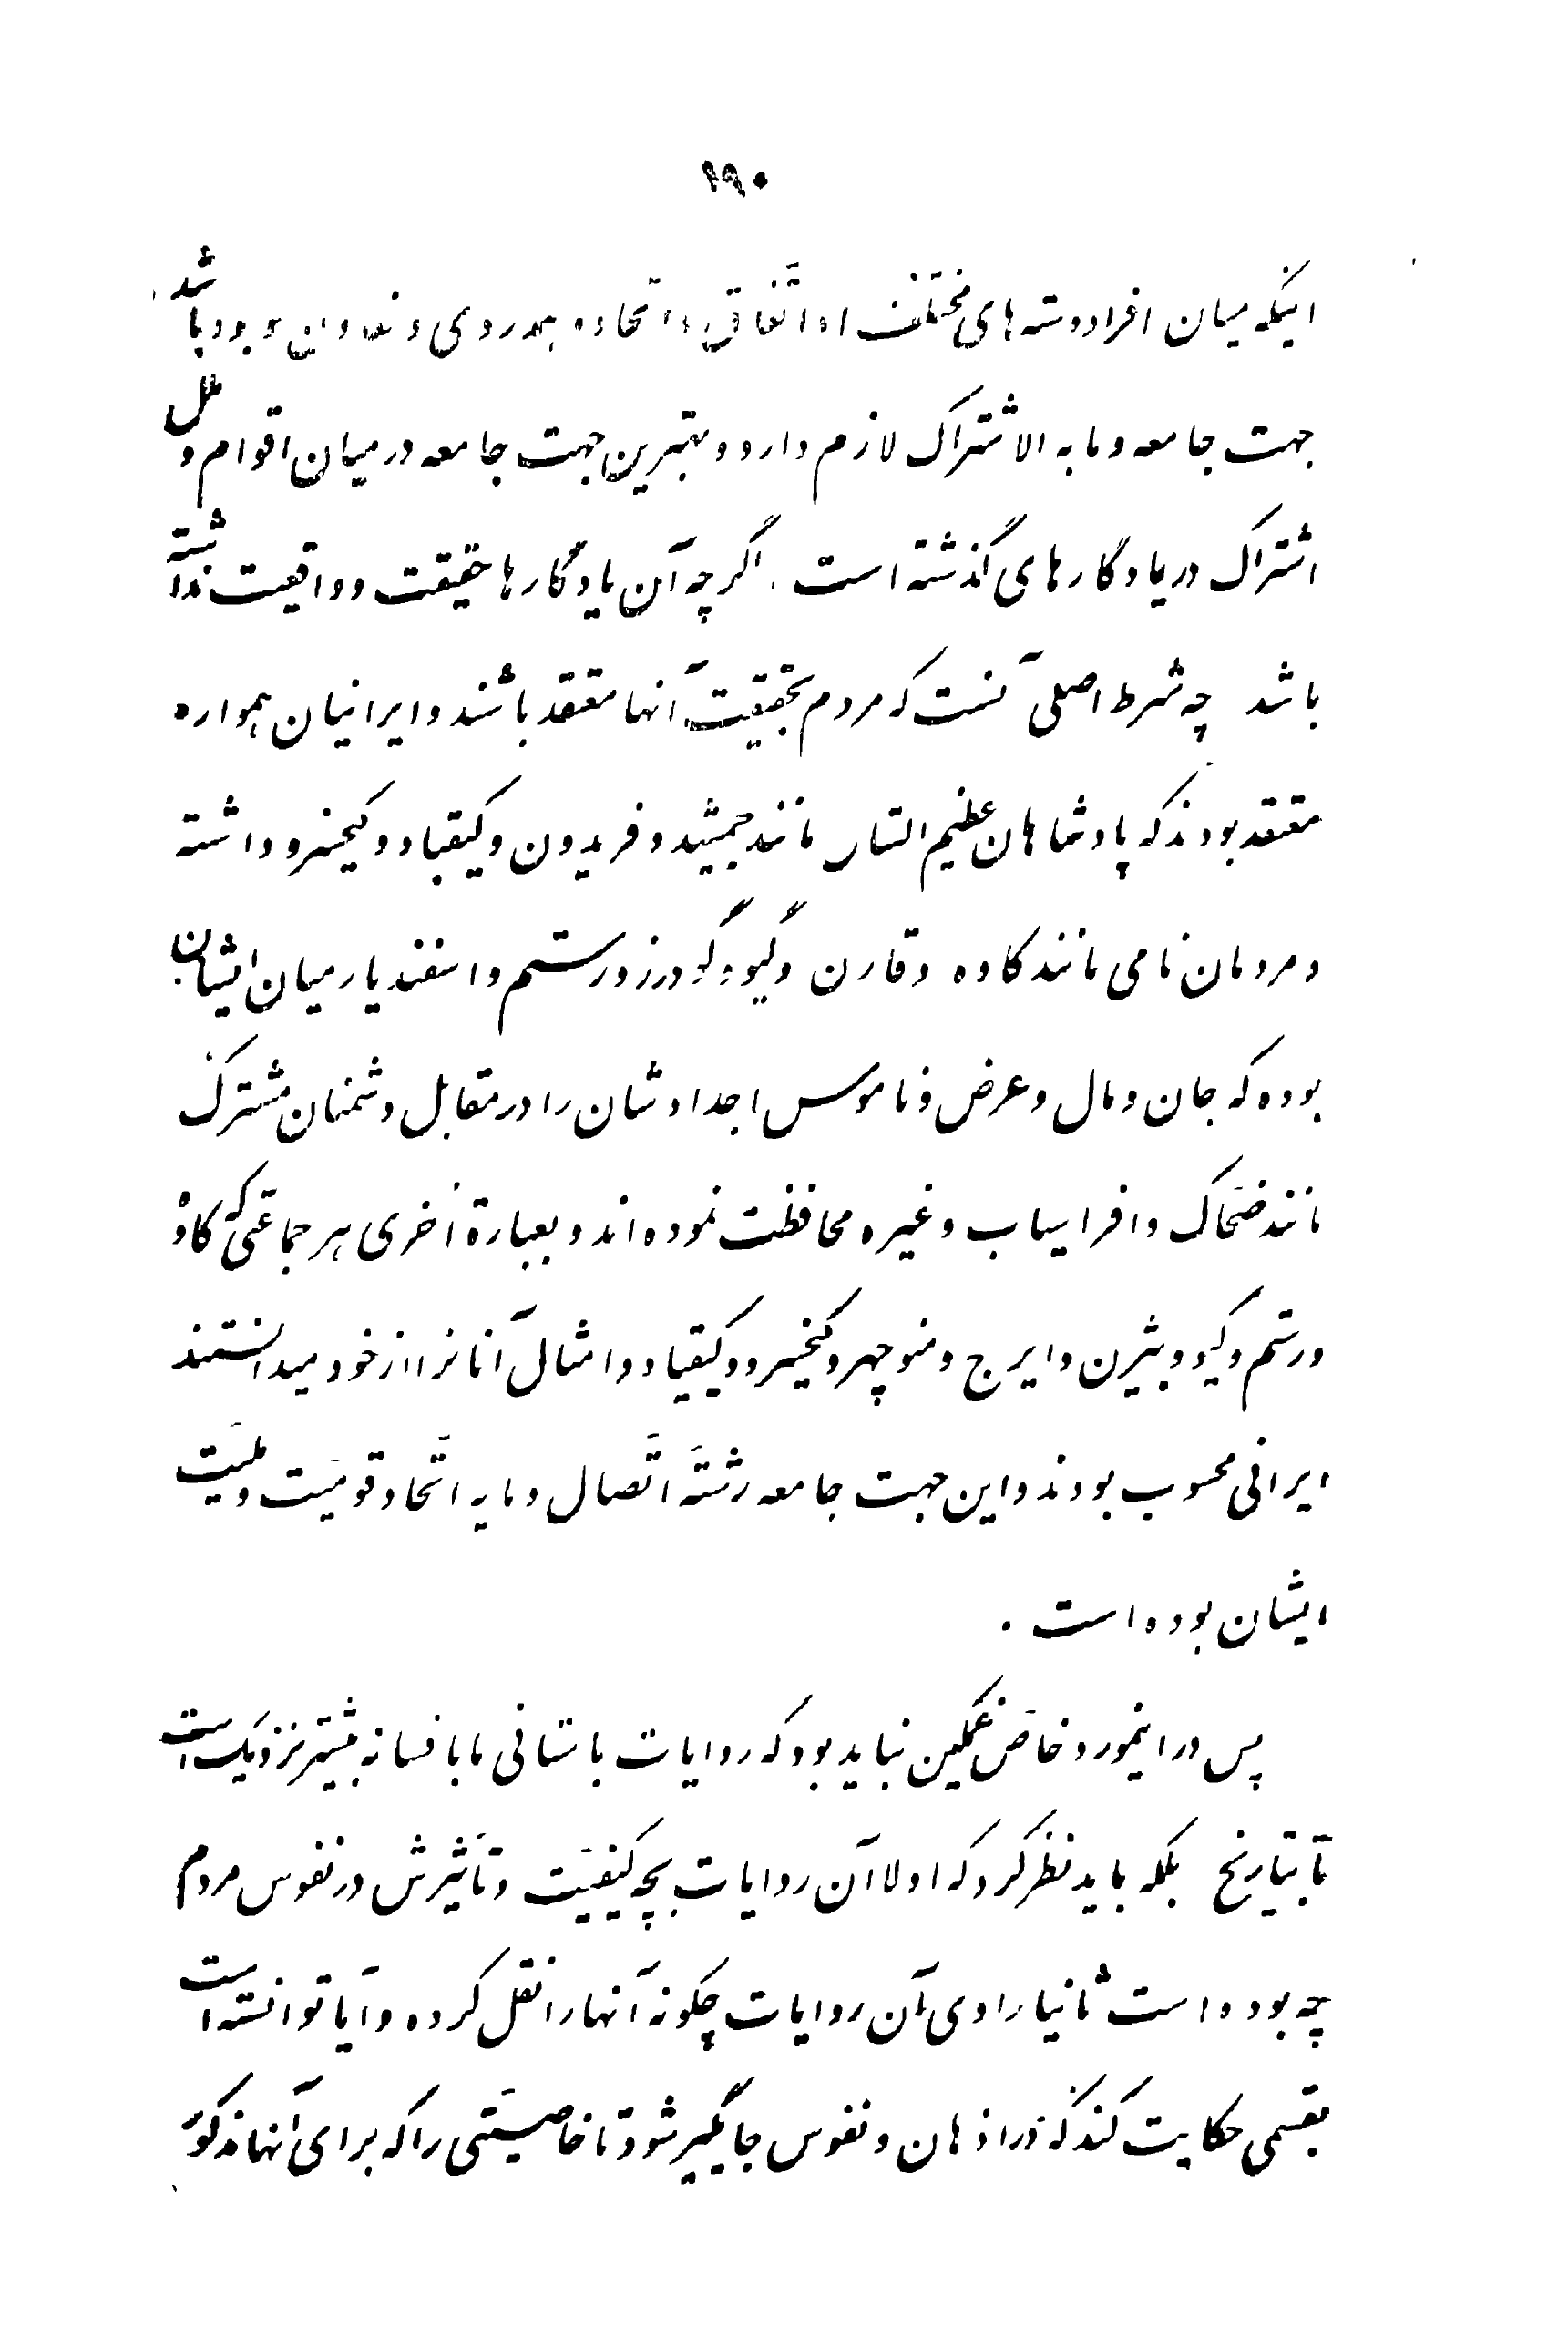 ۲۹۰
اینکه میان افراد و دسته‌های مختلف او اتّفاق و اتحاد و همدردی و تعاون موجود باشد
جهت جامعه و ما به الاشتراک لازم دارد و بهترین جهت جامعه در میان اقوام و ملل
اشتراک در یادگارهای گذشته است . اگرچه آن یادگارها حقیقت و واقعیت نداشته
باشد چه شرط اصلی آنست که مردم بحقیقت آنها معتقد باشند و ایرانیان همواره
معتقد بودند که پادشاهان عظیم الشان مانند جمشید و فریدون و کیقباد و کیخسرو داشته
و مردمان نامی مانند کاوه و قارن و گیو و گودرز و رستم و اسفندیار میان ایشان
بوده که جان و مال و عرض و ناموس اجدادشان را در مقابل دشمنان مشترک
مانند ضحّاک و افراسیاب و غیره محافظت نموده‌اند و بعبارة اُخری هر جماعتی که کاوهٔ
و رستم و گیو و بیژن و ایرج و منوچهر و کیخسرو و کیقباد و امثال آنانرا از خود میدانستند
ایرانی محسوب بودند و این جهت جامعه رشتهٔ اتّصال و مایه اتّحاد قومیّت و ملیّت
ایشان بوده است .
پس در اینمورد خاصّ غمگین نباید بود که روایات باستانی ما بافسانه بیشتر نزدیک است
تا بتاریخ بلکه باید نظر کرد که اولا آن روایات بچه کیفیّت و تأثیرش در نفوس مردم
چه بوده است ثانیا راوی آن روایات چگونه آنها را نقل کرده و آیا توانسته است
بقسمی حکایت کند که در اذهان و نفوس جایگیر شود تا خاصیّتی را که برای آنها مذکور